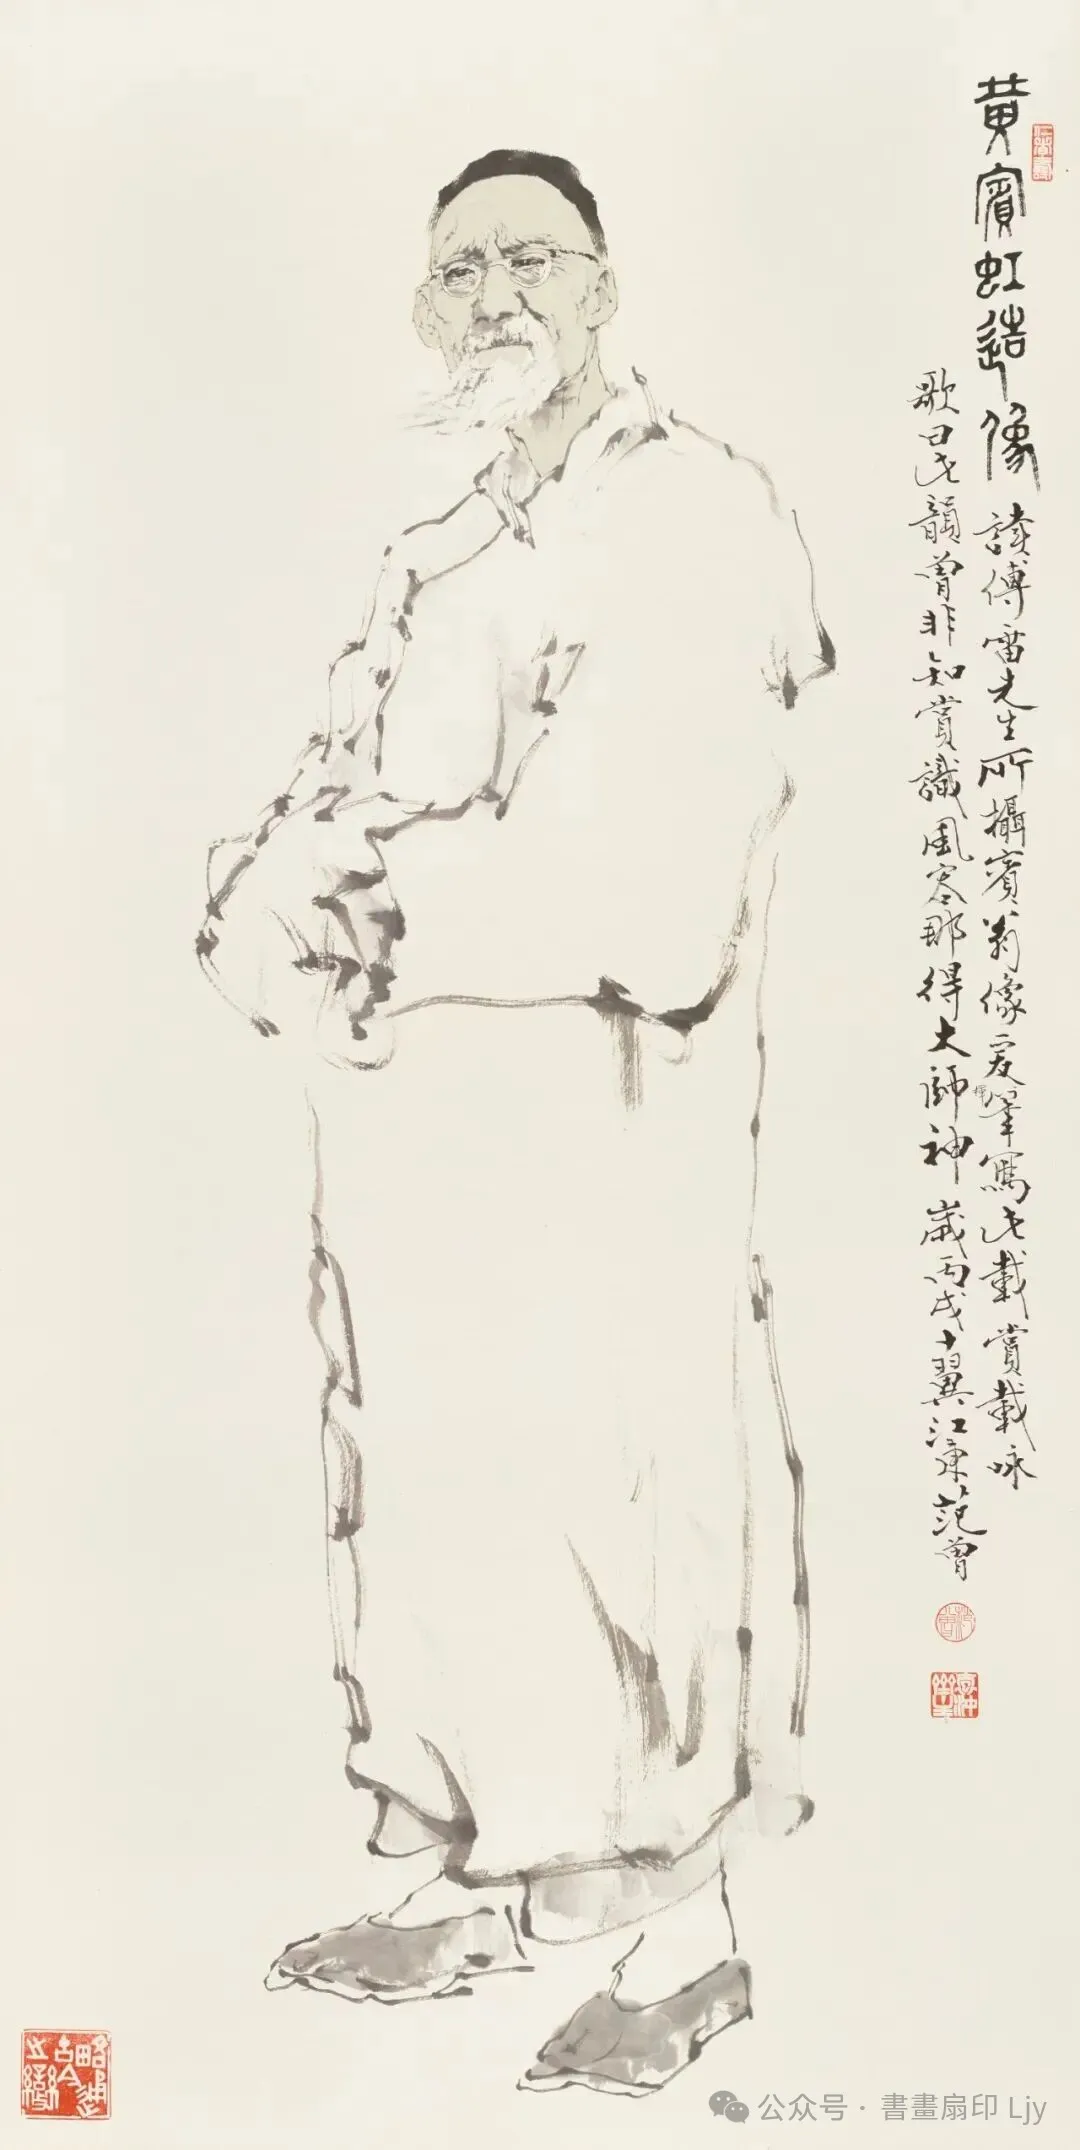 黄賓虹造像 讀傅雷先生所攝賓翁像爰揮筆寫此載賞載咏
歌曰此韻曾非知賞識風容那得大師神 歲丙戌十翼江東范曾
范曾
略通古今之變
公众号 · 書畫扇印 Ljy